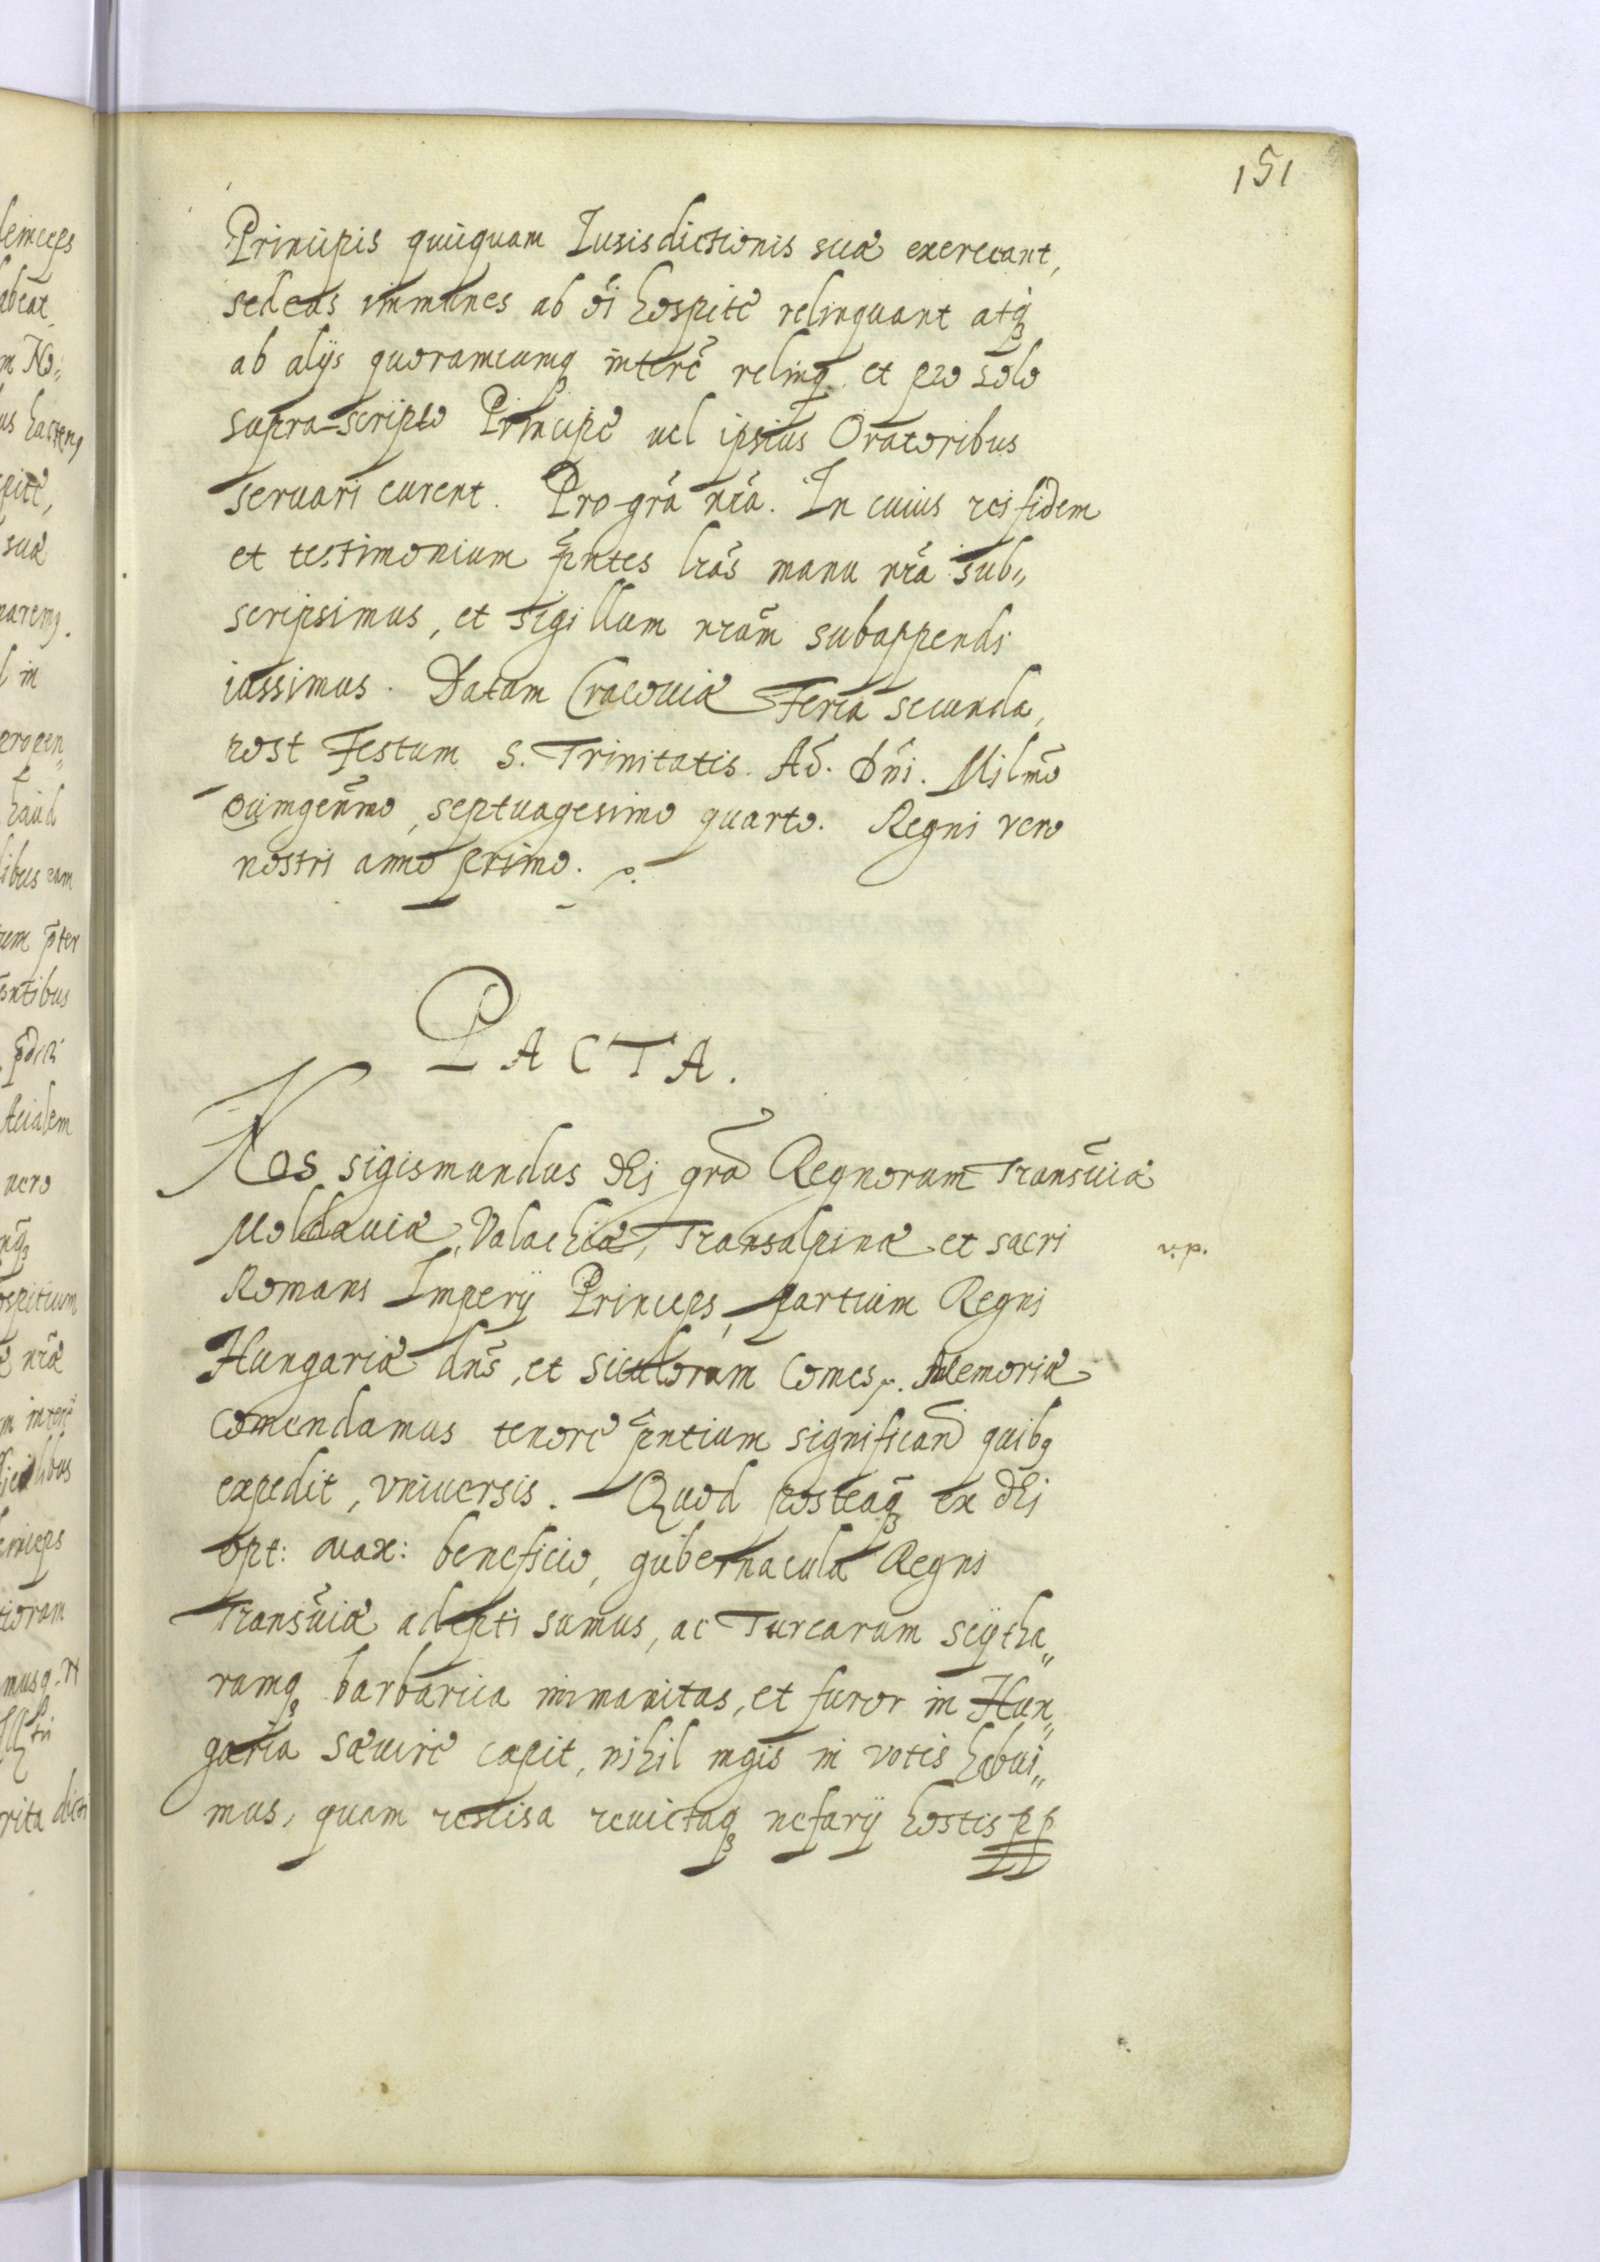 151
Principis quicquam Iurisdictionis suæ exerceant,
sed eas immunes ab oi hospite relinquant atq3
ab alijs quoramcumq interē relinq et pro solo
supra-scripto Principe uel ipsius Oratoribus
seruari curent. Pro grā nrā. In cuius rei fidem
et testimonium p̄ntes lrās manu nrā sub„
scripsimus, et sigillum nrām subappendi
iussimus. Datum Cracouiæ Feria secunda,
post Festum S. Trinitatis. Aō. Dn̄i. Milmō
Quingenmō, septuagesimo quarto. Regni vero
nostri anno primo.
PACTA.
Nos Sigismundus dei grā Regnorum Transūiæ
Moldauiæ, Valachiæ, Transalpinæ et sacri
Romani Imperij Princeps, partium Regni
Hungariæ dn̄s, et Siculorum Comes. Memoriæ
comendamus tenore p̄ntium significan quib9
expedit, vniuersis. Quod posteaq3 ex dei
opt: max: beneficio, gubernacula Regni
Transūiæ adepti sumus, ac Turcarum scijtha„
rumq3 barbarica immanitas, et furor in Hun„
garia sæuire cæpit, nihil mgis in votis habui„
mus, quam rescisa reuictaq3 nefarij hostis pp